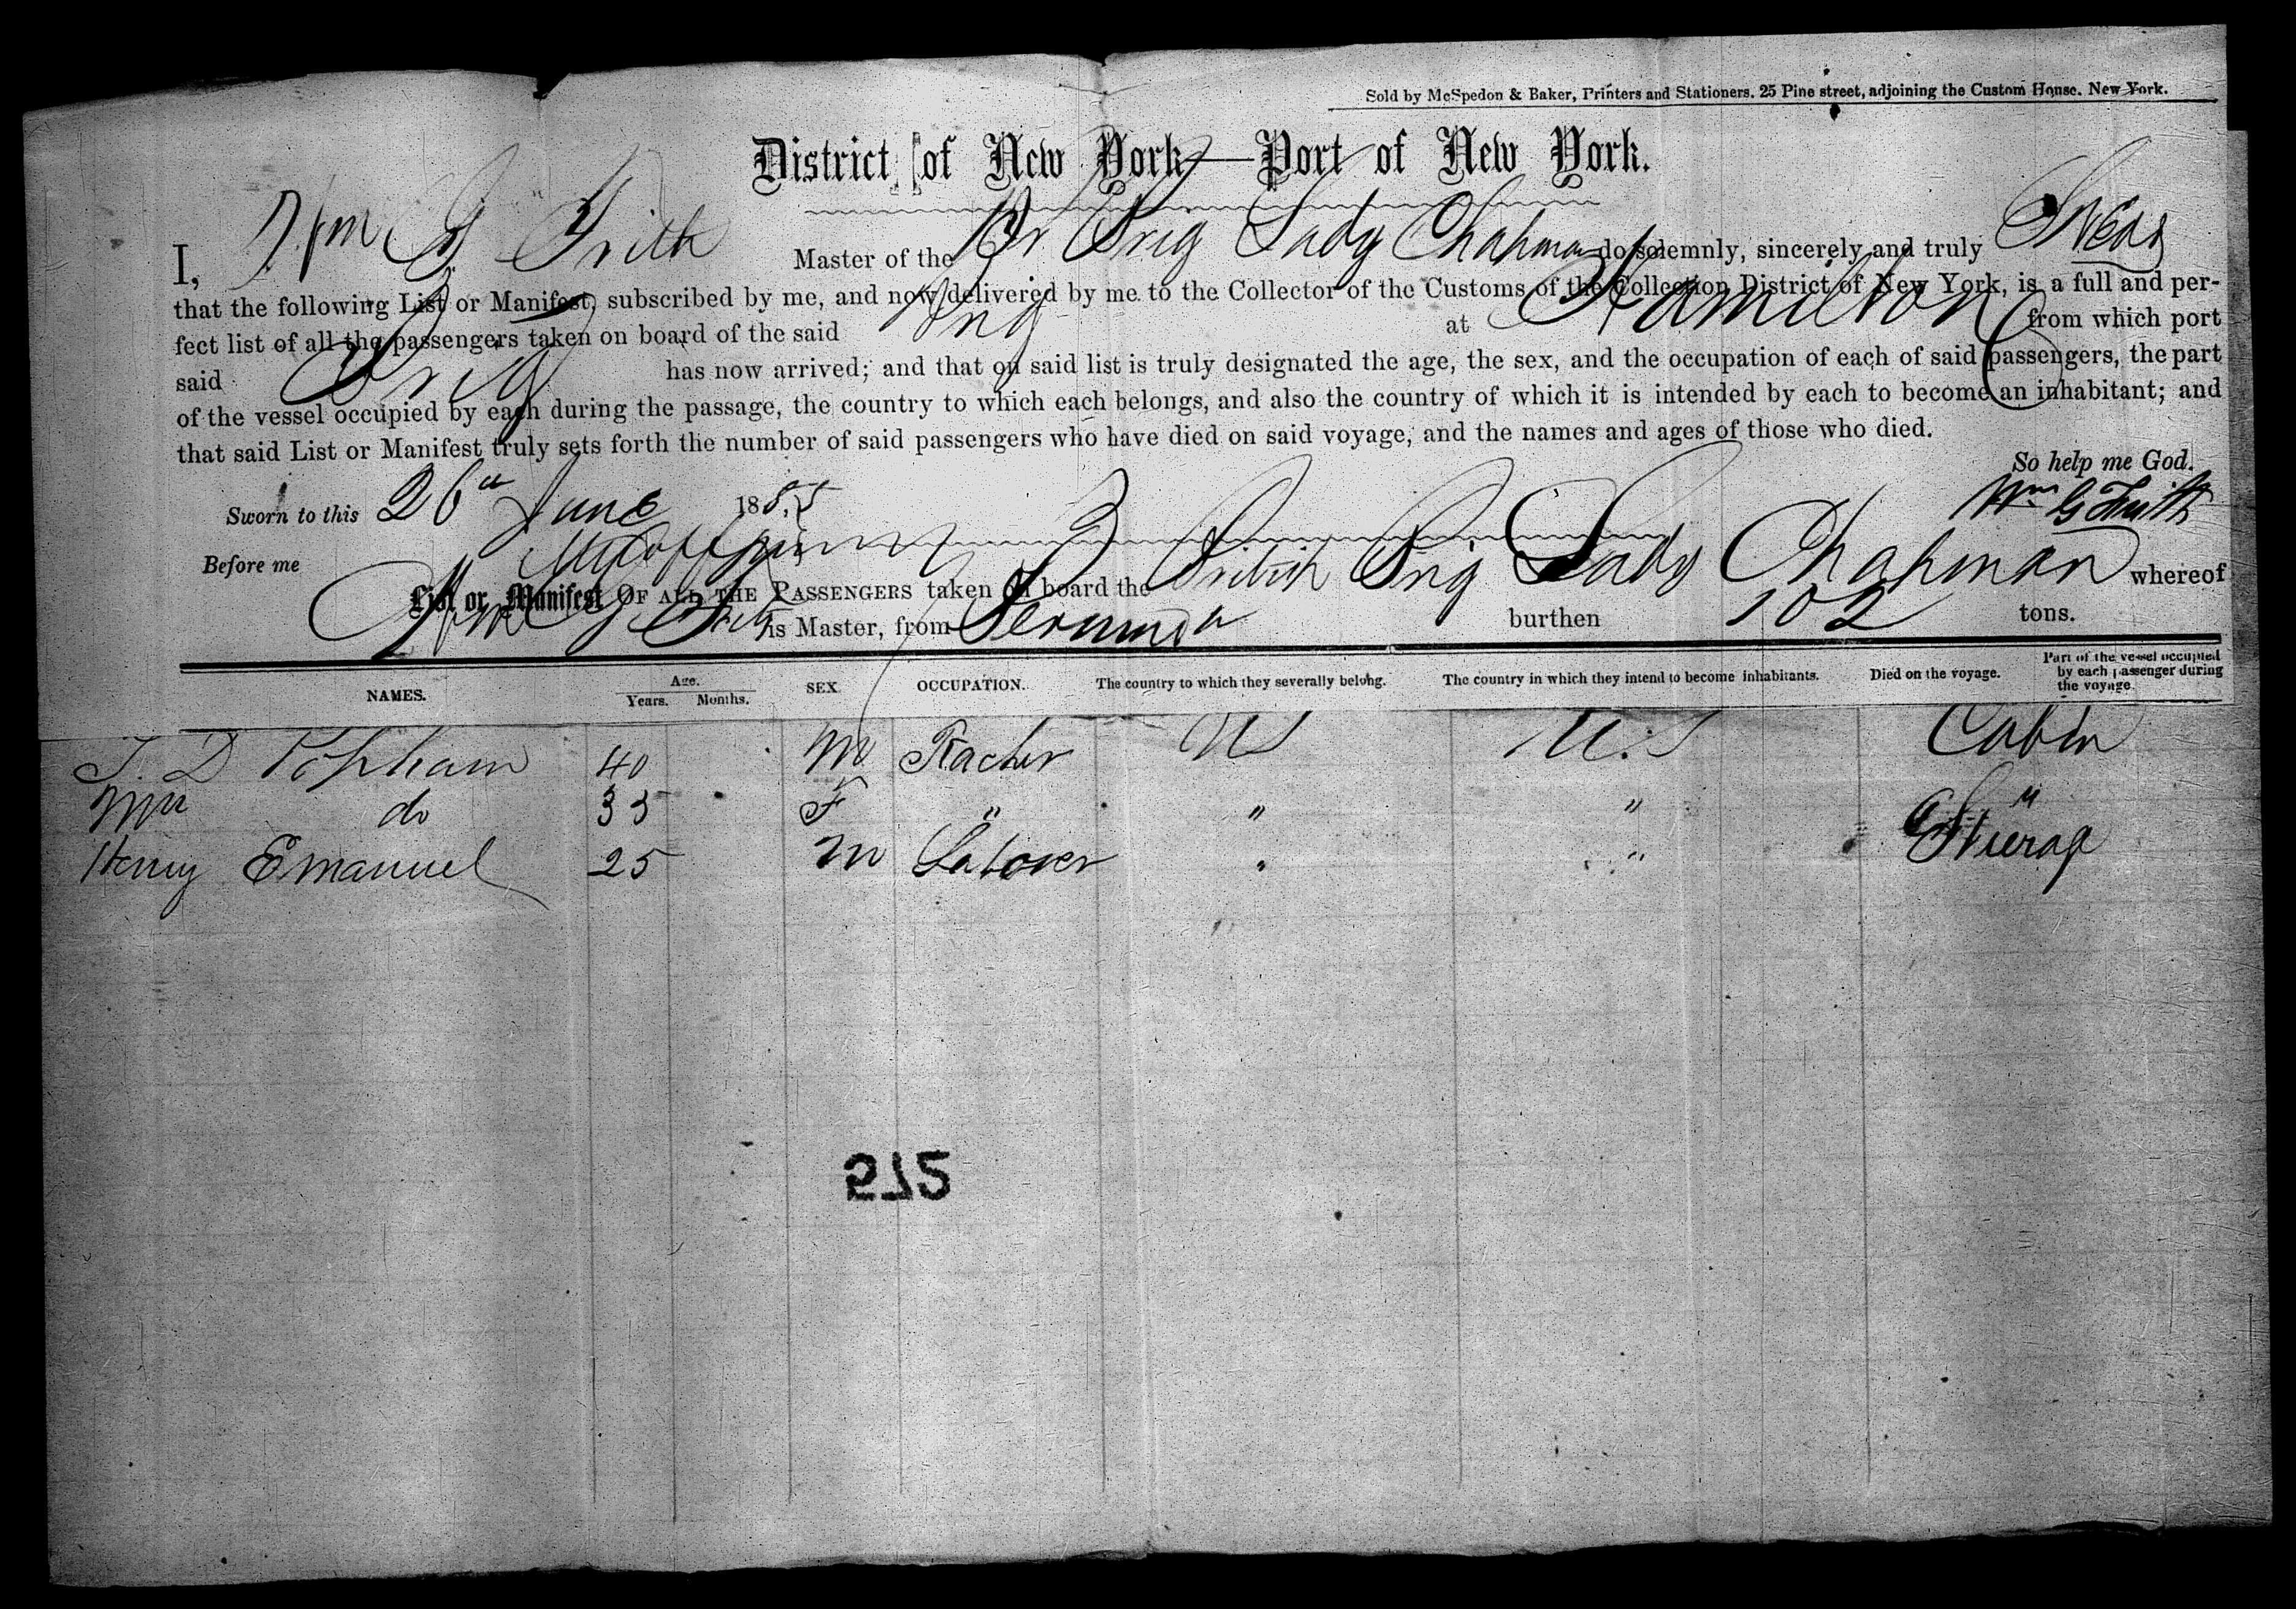 Sold by McSpedon & Baker, Printers and Stationers. 25 Pine street, adjoining the Custom House. New York.
District of New York—Port of New York.
I, Wm G Frith Master of the Br Brig Lady Chapman do solemnly, sincerely and truly Swear
that the following List or Manifest, subscribed by me, and now delivered by me to the Collector of the Customs of the Collection District of New York, is a full and per-
fect list of all the passengers taken on board of the said Brig at Hamilton from which port
said Brig has now arrived; and that on said list is truly designated the age, the sex, and the occupation of each of said passengers, the part
of the vessel occupied by each during the passage, the country to which each belongs, and also the country of which it is intended by each to become an inhabitant; and
that said List or Manifest truly sets forth the number of said passengers who have died on said voyage, and the names and ages of those who died.
So help me God.
Sworn to this 26th June 1855 Wm G Frith
Before me
List or Manifest OF ALL THE PASSENGERS taken on board the British Brig Lady Chapman whereof
Wm G Frith is Master, from Bermuda burthen 102 tons.
NAMES. Age. Years. Months. SEX. OCCUPATION. The country to which they severally belong. The country in which they intend to become inhabitants. Died on the voyage. Part of the vessel occupied by each passenger during the voyage.
Popham 40 M US U.S Cabin
Mrs do 35 F " " " "
Henry Emanuel 25 M Laborer " " Steerage
572